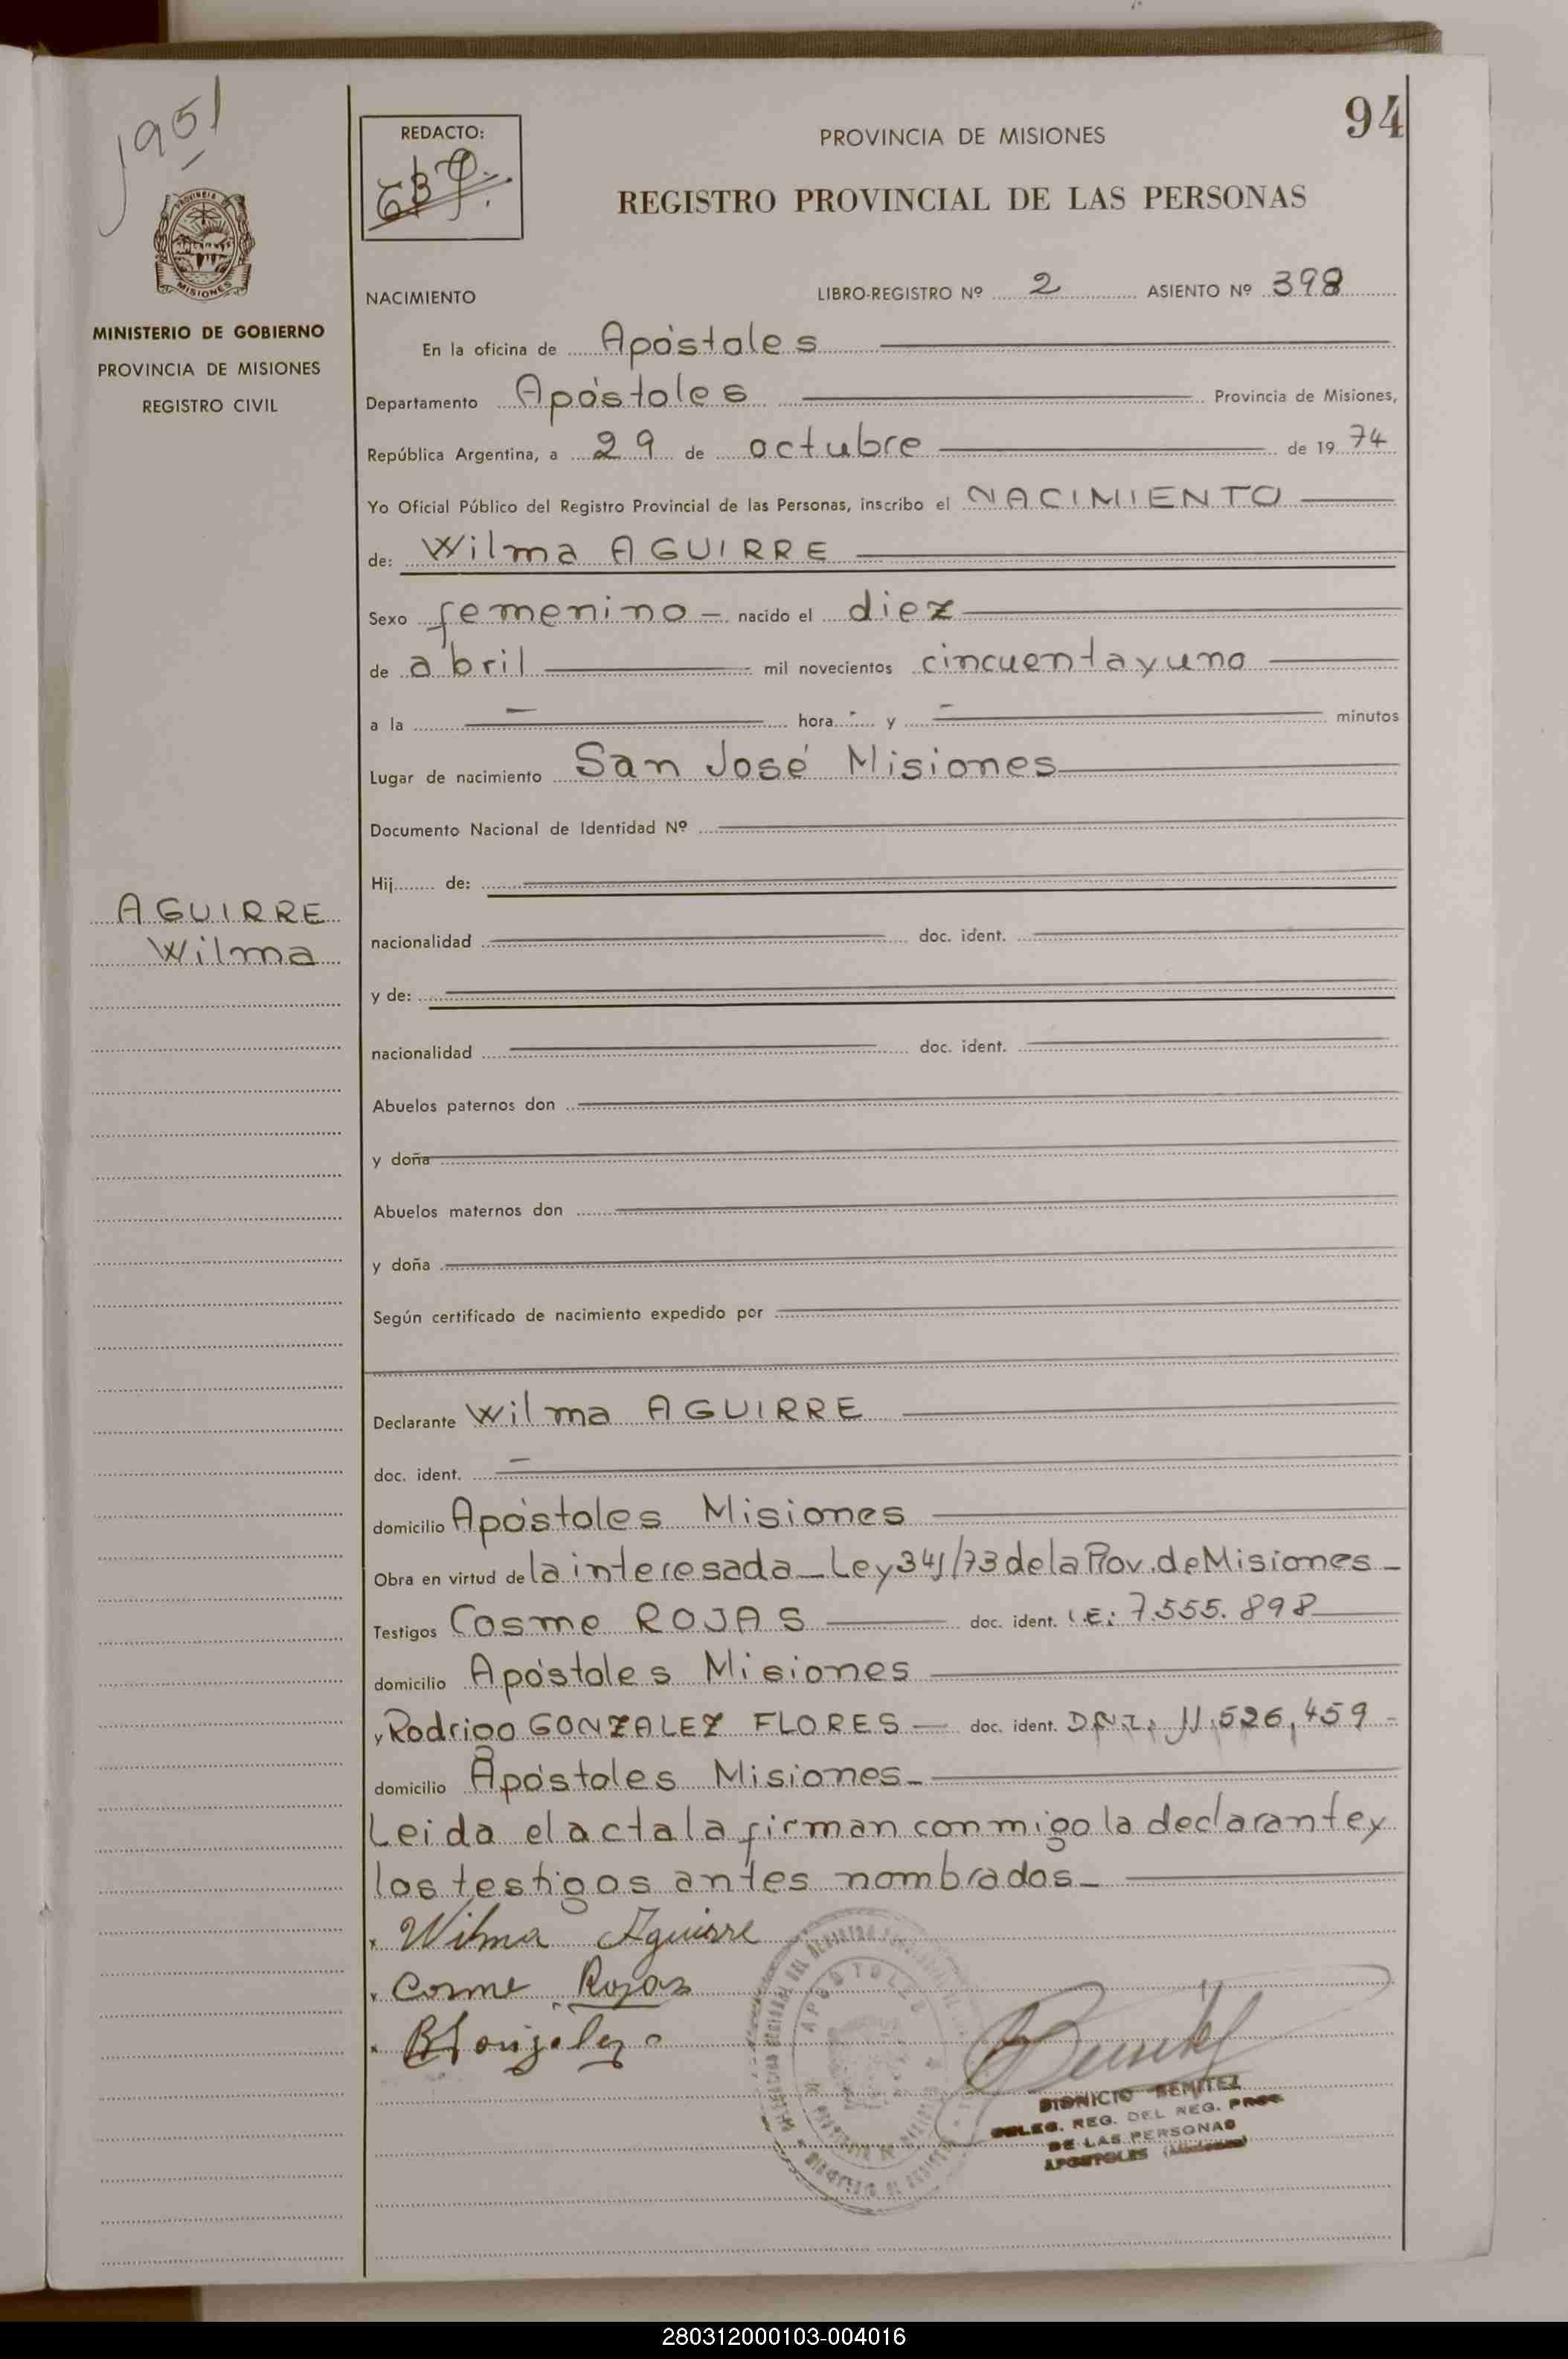 1951
94
REDACTO:
PROVINCIA DE MISIONES
REGISTRO PROVINCIAL DE LAS PERSONAS
PROVINCIA
MISIONES
MINISTERIO DE GOBIERNO
PROVINCIA DE MISIONES
REGISTRO CIVIL
NACIMIENTO LIBRO-REGISTRO Nº 2 ASIENTO Nº 398
En la oficina de Apóstoles
Departamento Apóstoles Provincia de Misiones,
República Argentina, a 29 de octubre de 19 74
Yo Oficial Público del Registro Provincial de las Personas, inscribo el NACIMIENTO
de: Wilma AGUIRRE
Sexo femenino — nacido el diez
de abril mil novecientos cincuenta y uno
a la — hora - y — minutos
Lugar de nacimiento San José Misiones
Documento Nacional de Identidad Nº
Hij........ de:
AGUIRRE
Wilma
nacionalidad doc. ident.
y de:
nacionalidad doc. ident.
Abuelos paternos don
y doña
Abuelos maternos don
y doña
Según certificado de nacimiento expedido por
Declarante Wilma AGUIRRE
doc. ident. —
domicilio Apóstoles Misiones
Obra en virtud de la interesada — Ley 341/73 de la Prov. de Misiones —
Testigos Cosme ROJAS doc. ident. I.E: 7.555.898
domicilio Apóstoles Misiones
y Rodrigo GONZALEZ FLORES — doc. ident. D.N.I. 11.526,459 -
domicilio Apóstoles Misiones —
Leida el acta la firman conmigo la declarante y
los testigos antes nombrados —
Wilma Aguirre
Cosme Rojas
APOSTOLES
DIONICIO BENITEZ
DELEG. REG. DEL REG. PROV.
DE LAS PERSONAS
APOSTOLES (Misiones)
280312000103-004016